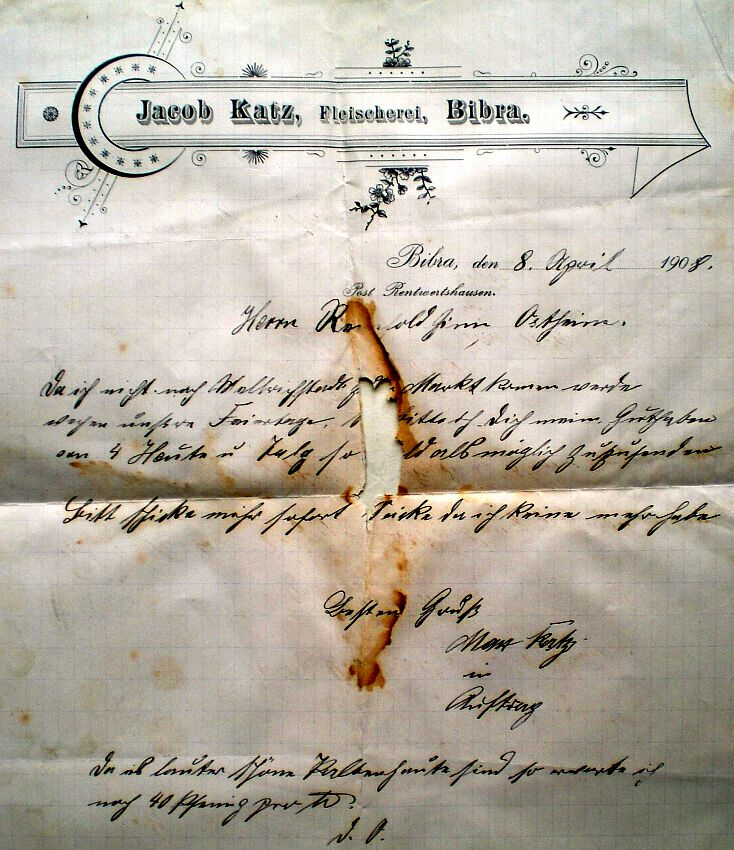 Jacob Katz, Fleischerei, Bibra.
Bibra, den 8. April 1908.
Post Rentwertshausen.
Herrn Re nhold Zinn Ostheim.
Da ich nicht nach Mellrichstadt z. Markt komen werde
wegen unsere Feiertage, bitte ich Dich mein Guthaben
von 4 Häute u Talg so ald als möglich zuzusenden
Bitt schicke mihr sofort Säcke da ich keine mehr habe
Besten Gruß
Max Katz
in
Auftrag
Da es lauter schöne Kalbenhäute sind so erwarte ich
noch 40 Pfenig pro ℔.
d. O.